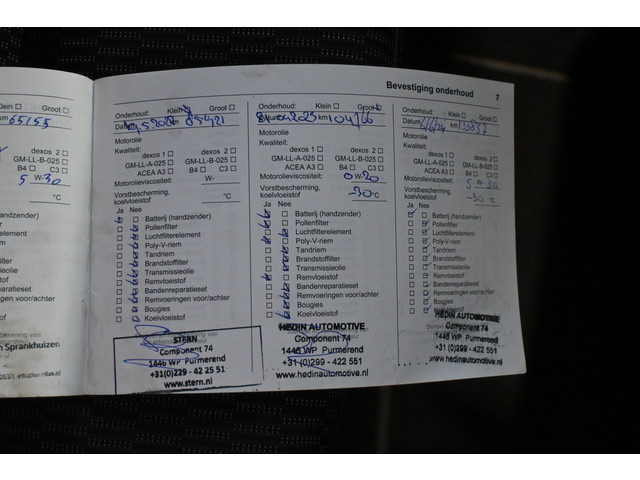 Bevestiging onderhoud 7
Klein Groot
km 65155
dexos 2
GM-LL-B-025
B4 C3
5 W-30
°C
(handzender)
filterelement
ter
ssieolie
f
ratieset
gen voor/achter
eistof
n Sprankhuizen
Onderhoud: Klein Groot
Datum km 85421
Motorolie
Kwaliteit:
dexos 1 dexos 2
GM-LL-A-025 GM-LL-B-025
ACEA A3 B4 C3
Motorolieviscositeit: W-
Vorstbescherming, koelvloeistof °C
Ja Nee
Batterij (handzender)
Pollenfilter
Luchtfilterelement
Poly-V-riem
Tandriem
Brandstoffilter
Transmissieolie
Remvloeistof
Bandenreparatieset
Remvoeringen voor/achter
Bougies
Koelvloeistof
STERN
Component 74
1446 WP Purmerend
+31(0)229 - 42 25 51
www.stern.nl
Onderhoud: Klein Groot
2023 km 104766
Motorolie
Kwaliteit:
dexos 1 dexos 2
GM-LL-A-025 GM-LL-B-025
ACEA A3 B4 C3
Motorolieviscositeit: 0 W-20
Vorstbescherming, koelvloeistof -30 °C
Ja Nee
Batterij (handzender)
Pollenfilter
Luchtfilterelement
Poly-V-riem
Tandriem
Brandstoffilter
Transmissieolie
Remvloeistof
Bandenreparatieset
Remvoeringen voor/achter
Bougies
Koelvloeistof
HEDIN AUTOMOTIVE
Component 74
1446 WP Purmerend
+31(0)299 - 422 551
www.hedinautomotive.nl
Onderhoud: Klein Groot
Datum km
Motorolie
Kwaliteit:
dexos 1 dexos 2
GM-LL-A-025 GM-LL-B-025
ACEA A3 B4 C3
Motorolieviscositeit: 5 W-
Vorstbescherming, koelvloeistof -30 °C
Ja Nee
Batterij (handzender)
Pollenfilter
Luchtfilterelement
Poly-V-riem
Tandriem
Brandstoffilter
Transmissieolie
Remvloeistof
Bandenreparatieset
Remvoeringen voor/achter
Bougies
Koelvloeistof
HEDIN AUTOMOTIVE
Component 74
1446 WP Purmerend
+31(0)299 - 422 551
www.hedinautomotive.nl